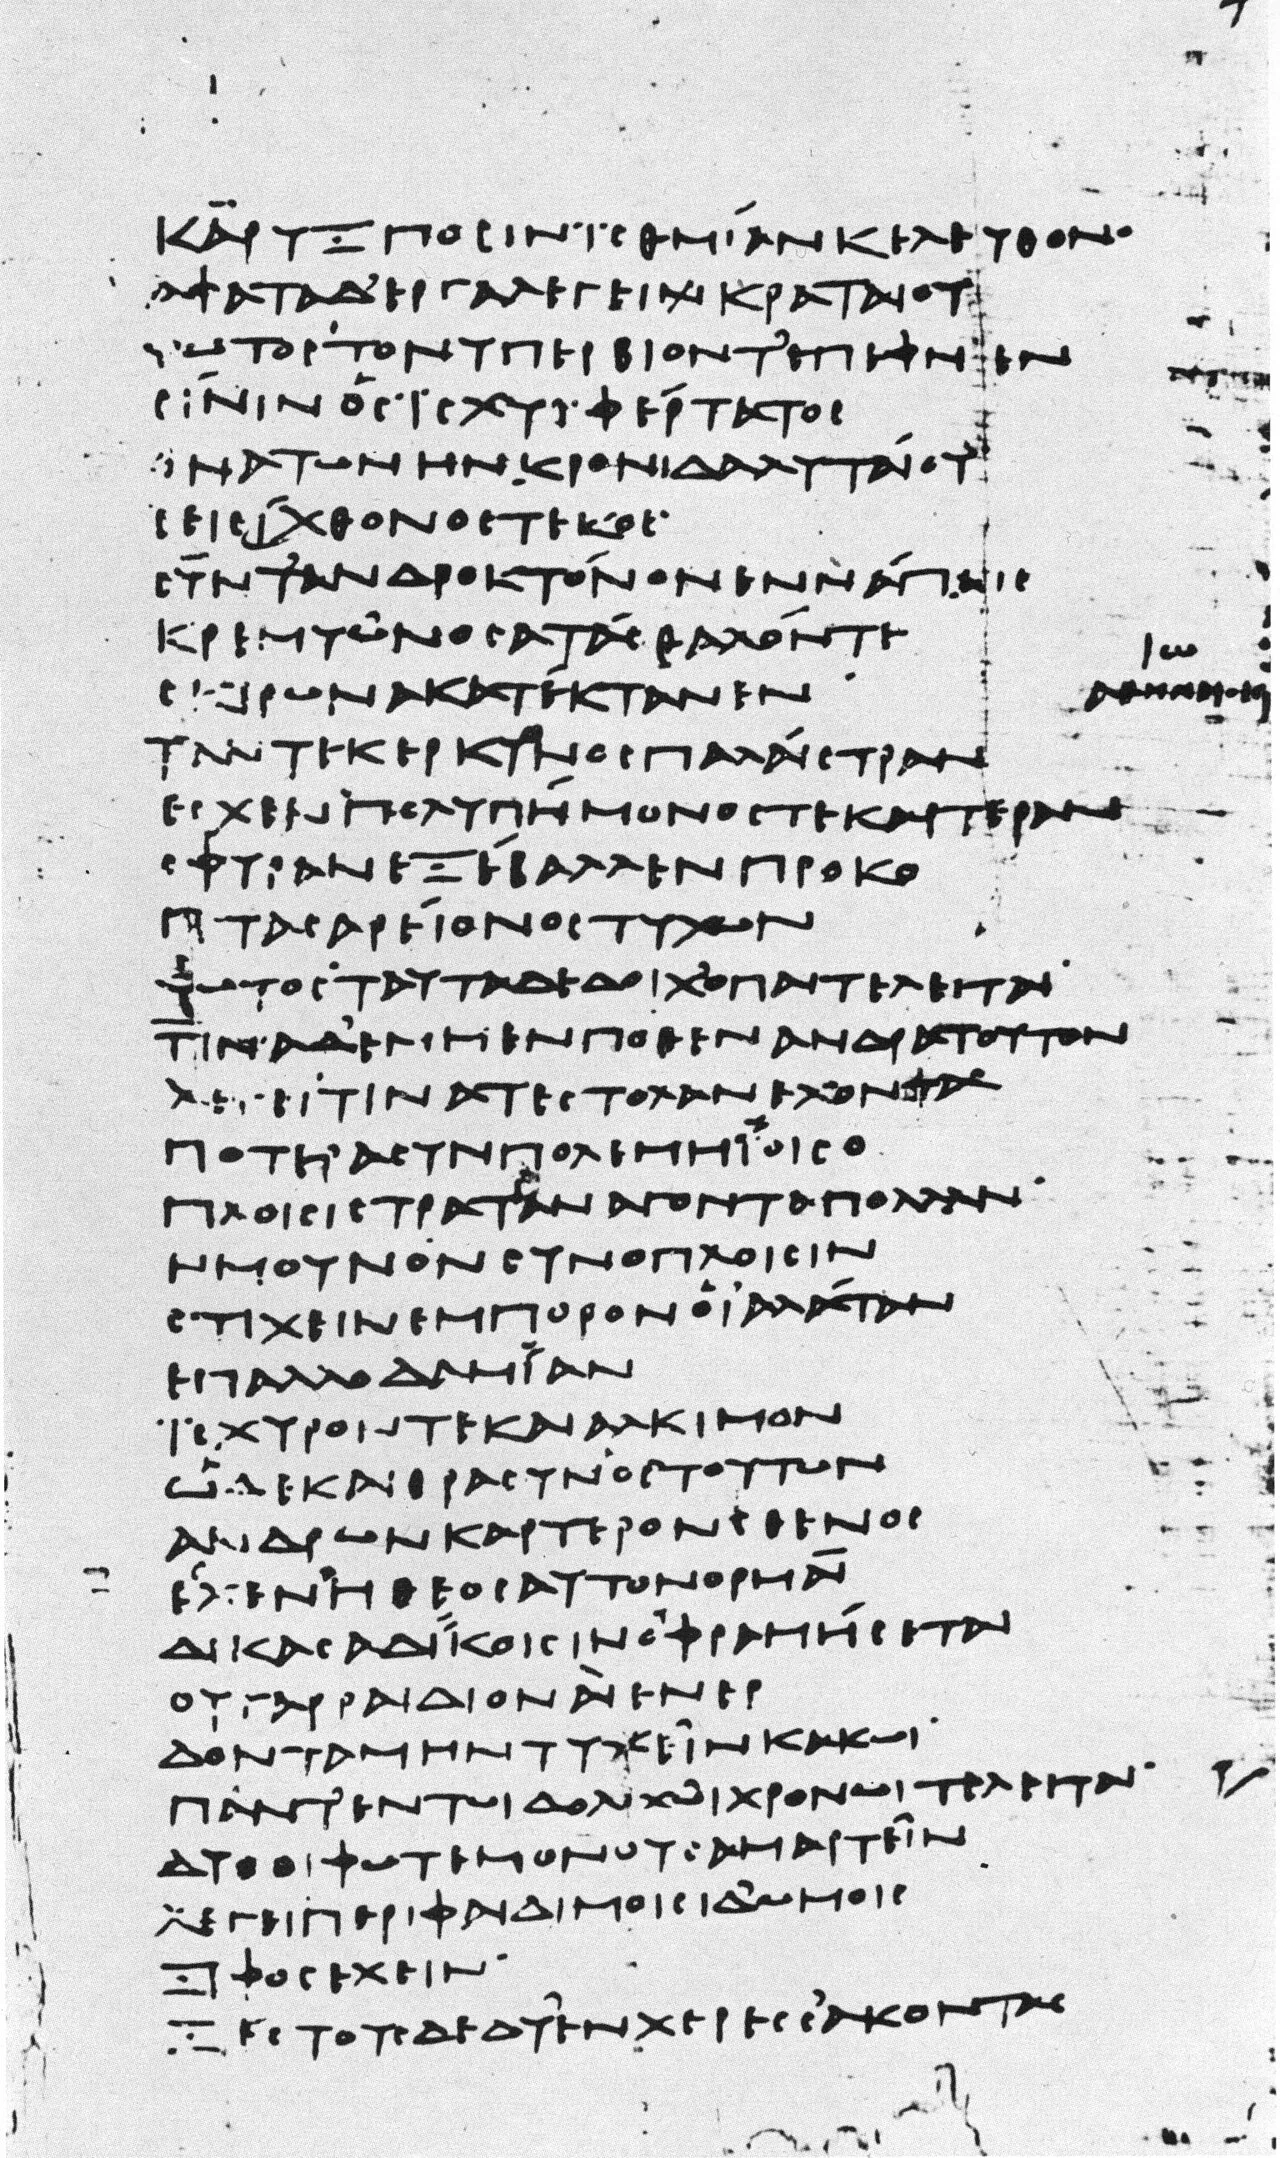 ΚΑΡΥΞΠΟΣΙΝΙΣΘΜΙΑΝΚΕΛΕΥΘΟΝ
ΑΦΑΤΑΔΕΡΓΑΛΕΓΕΙΚΡΑΤΑΙΟΥ
ΦΩΤΟΣΤΟΝΥΠΕΡΒΙΟΝΤΕΠΕΦΝΕΝ
ΣΙΝΙΝΟΣΙΣΧΥΙΦΕΡΤΑΤΟΣ
ΘΝΑΤΩΝΗΝΚΡΟΝΙΔΑΛΥΤΑΙΟΥ
ΣΕΙΣΙΧΘΟΝΟΣΤΕΚΟΣ
ΣΥΝΤΑΝΔΡΟΚΤΟΝΟΝΕΝΝΑΠΑΙΣ
ΚΡΕΜΥΩΝΟΣΑΤΑΣΘΑΛΟΝΤΕ
ΣΚΙΡΩΝΑΚΑΤΕΚΤΑΝΕΝ
ΤΑΝΤΕΚΕΡΚΥΟΝΟΣΠΑΛΑΙΣΤΡΑΝ
ΕΣΧΕΝΠΟΛΥΠΗΜΟΝΟΣΤΕΚΑΡΤΕΡΑΝ
ΣΦΥΡΑΝΕΞΕΒΑΛΛΕΝΠΡΟΚΟ
ΠΤΑΣΑΡΕΙΟΝΟΣΤΥΧΩΝ
ΦΩΤΟΣΤΑΥΤΑΔΕΔΟΙΧΟΠΑΙΤΕΛΕΙΤΑΙ
ΤΙΝΑΔΕΜΜΕΝΠΟΘΕΝΑΝΔΡΑΤΟΥΤΟΝ
ΛΕΓΕΙΤΙΝΑΤΕΣΤΟΛΑΝΕΧΟΝΤΑ
ΠΟΤΕΡΑΣΥΝΠΟΛΕΜΗΙΟΙΣΟ
ΠΛΟΙΣΙΣΤΡΑΤΙΑΝΑΓΟΝΤΑΠΟΛΛΑΝ
ΗΜΟΥΝΟΝΣΥΝΟΠΛΟΙΣΙΝ
ΣΤΙΧΕΙΝΕΜΠΟΡΟΝΟΙΑΛΑΤΑΝ
ΕΠΑΛΛΟΔΑΜΙΑΝ
ΙΣΧΥΡΟΝΤΕΚΑΙΑΛΚΙΜΟΝ
ΩΔΕΚΑΙΘΡΑΣΥΝΟΣΤΟΥΤΩΝ
ΑΝΔΡΩΝΚΑΡΤΕΡΟΝΣΘΕΝΟΣ
ΕΣΧΕΝΗΘΕΟΣΑΥΤΟΝΟΡΜΑΙ
ΔΙΚΑΣΑΔΙΚΟΙΣΙΝΟΦΡΑΜΗΣΕΤΑΙ
ΟΥΓΑΡΡΑΙΔΙΟΝΑΙΕΝΕΡ
ΔΟΝΤΑΜΗΝΤΥΧΕΙΝΚΑΚΩΙ
ΠΑΝΤΕΝΤΩΙΔΟΛΙΧΩΙΧΡΟΝΩΙΤΕΛΕΙΤΑΙ
ΔΥΟΟΙΦΩΤΕΜΟΝΟΥΣΑΜΑΡΤΕΙΝ
ΛΕΓΕΙΠΕΡΙΦΑΙΔΙΜΟΙΣΙΔΩΜΟΙΣ
ΞΙΦΟΣΕΧΕΙΝ
ΞΕΣΤΟΥΣΔΕΔΥΕΝΧΕΡΕΣΣΑΚΟΝΤΑΣ